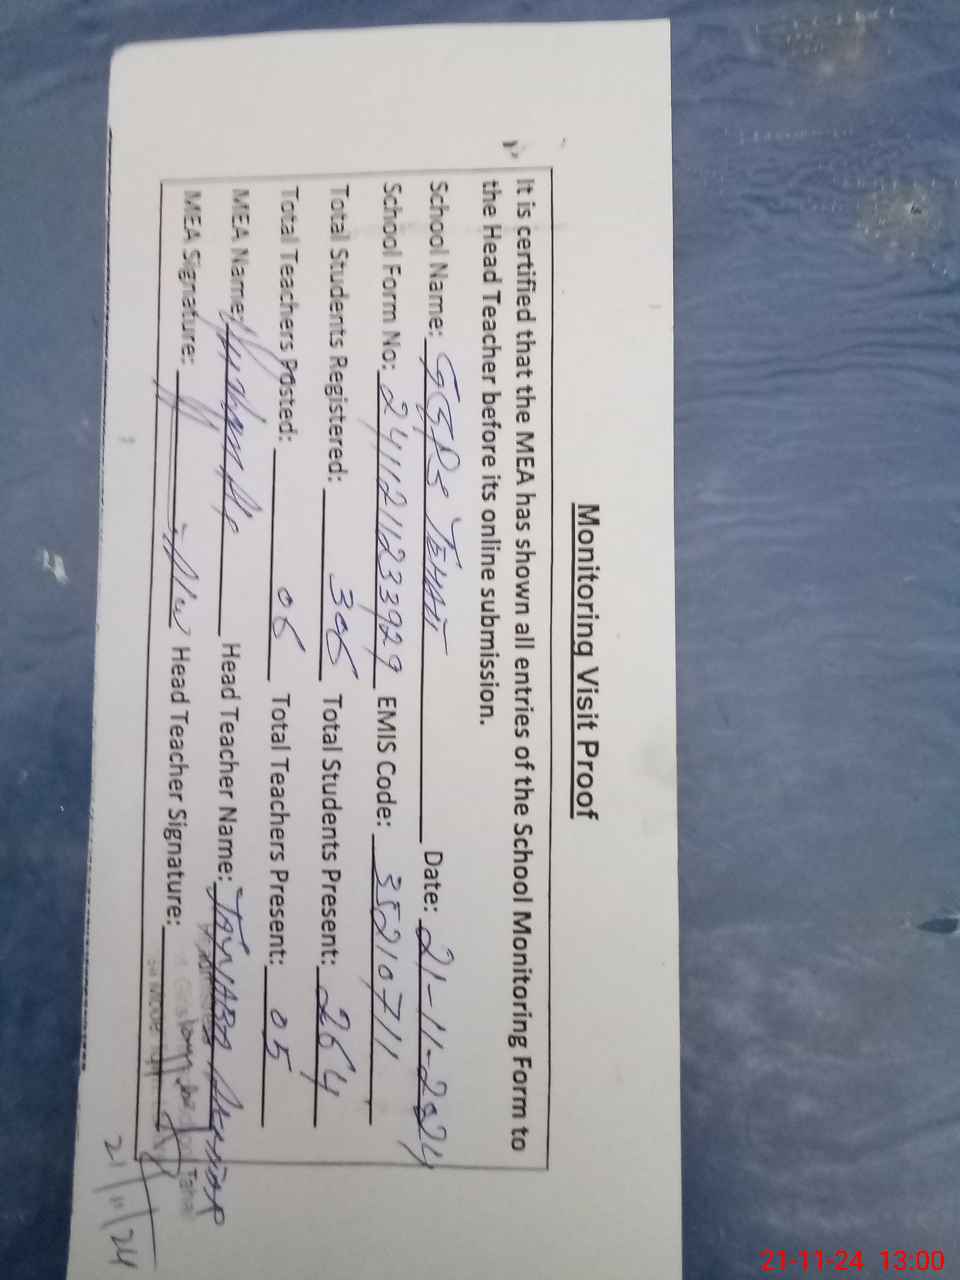 Monitoring Visit Proof
It is certified that the MEA has shown all entries of the School Monitoring Form to
the Head Teacher before its online submission.
School Name: Date: 21-11-2024
School Form No: 2411211233929 EMIS Code: 35210711
Total Students Registered: 306 Total Students Present: 264
Total Teachers Posted: 06 Total Teachers Present: 05
MEA Name: Head Teacher Name: TAYYABA
MEA Signature: Head Teacher Signature:
21/11/24
21-11-24 13:00